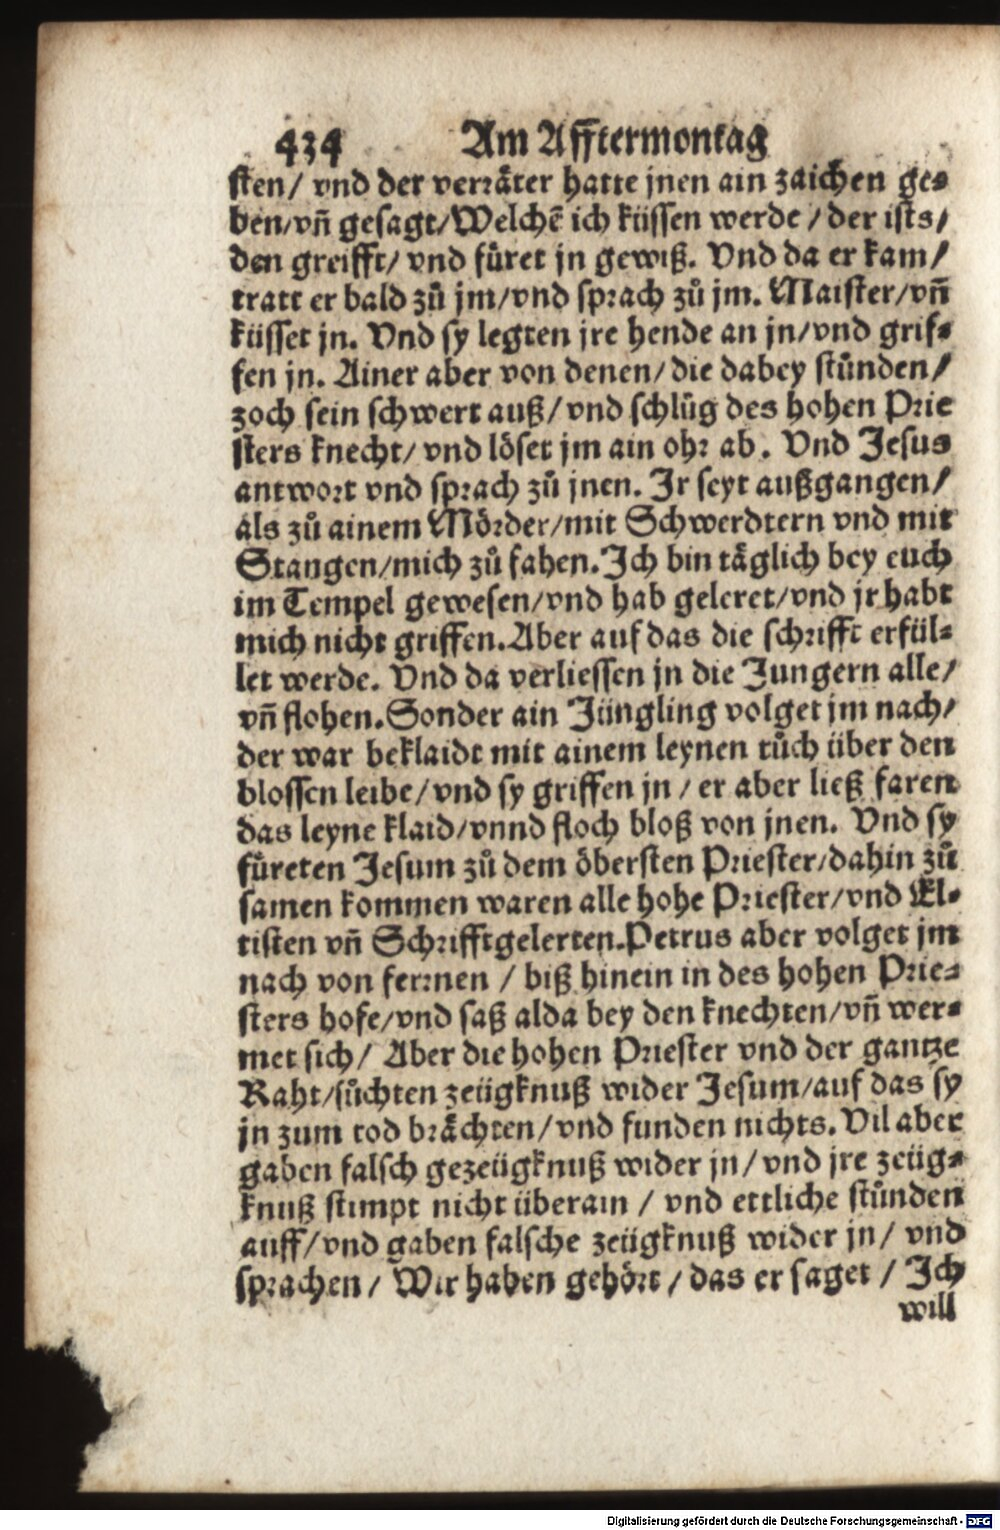 434 Am Afftermontag
sten/ vnd der verräter hatte jnen ain zaichen ge⸗
ben/vñ gesagt/Welchē ich küssen werde/der ists/
den greifft/ vnd fůret jn gewiß. Vnd da er kam/
tratt er bald zů jm/vnd sprach zů jm. Maister/vñ
küsset jn. Vnd sy legten jre hende an jn/vnd grif⸗
fen jn. Ainer aber von denen/die dabey stůnden/
zoch sein schwert auß/vnd schlůg des hohen Prie
sters knecht/ vnd löset jm ain ohr ab. Vnd Jesus
antwort vnd sprach zů jnen. Jr seyt außgangen/
als zů ainem Mörder/mit Schwerdtern vnd mit
Stangen/mich zů fahen. Jch bin täglich bey euch
im Tempel gewesen/vnd hab geleret/vnd jr habt
mich nicht griffen. Aber auf das die schrifft erfül⸗
let werde. Vnd da verliessen jn die Jungern alle/
vñ flohen. Sonder ain Jüngling volget jm nach/
der war beklaidt mit ainem leynen tůch über den
blossen leibe/vnd sy griffen jn/er aber ließ faren
das leyne klaid/vnnd floch bloß von jnen. Vnd sy
fůreten Jesum zů dem öbersten Priester/dahin zů
samen kommen waren alle hohe Priester/vnd El⸗
tisten vñ Schrifftgelerten. Petrus aber volget jm
nach von ferrnen / biß hinein in des hohen Prie⸗
sters hofe/vnd saß alda bey den knechten/vñ wer⸗
met sich/ Aber die hohen Priester vnd der gantze
Raht/sůchten zeügknuß wider Jesum/auf das sy
jn zum tod brächten/vnd funden nichts. Vil aber
gaben falsch gezeügknuß wider jn/vnd jre zeüg⸗
knuß stimpt nicht überain / vnd ettliche stůnden
auff/vnd gaben falsche zeügknuß wider jn/ vnd
sprachen/ Wir haben gehört/das er saget / Jch
will
Digitalisierung gefördert durch die Deutsche Forschungsgemeinschaft - DFG